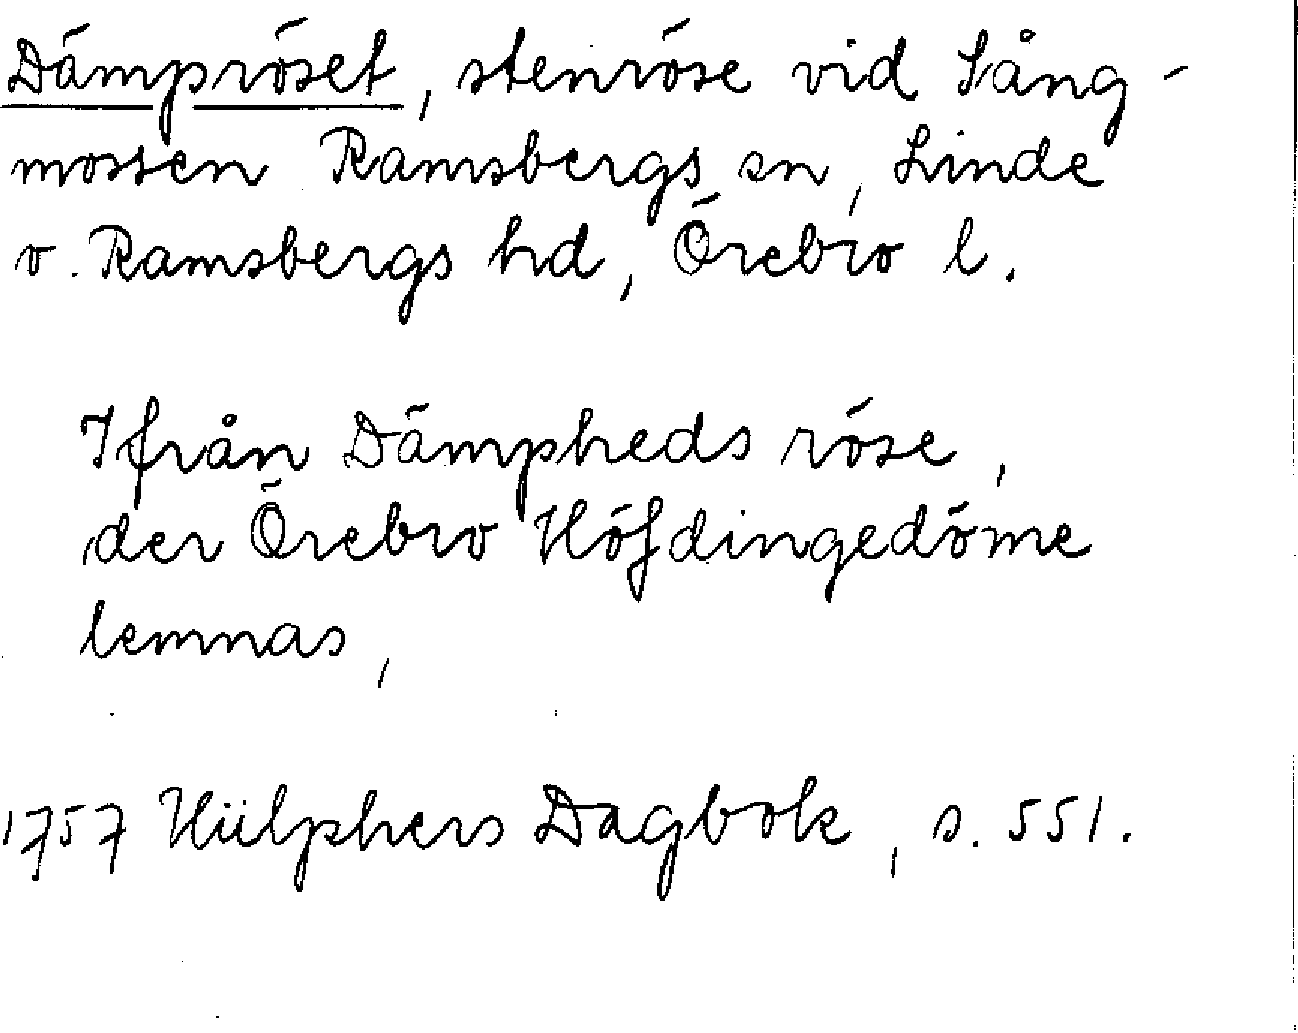 Dämpröset, stenröse vid Sång-
mossen Ramsbergs sn, Linde
o. Ramsbergs hd, Örebro l.
Ifrån Dämpheds röse,
der Örebro Höfdingedöme
lemnas,
1757 Hülphers Dagbok, s. 551.